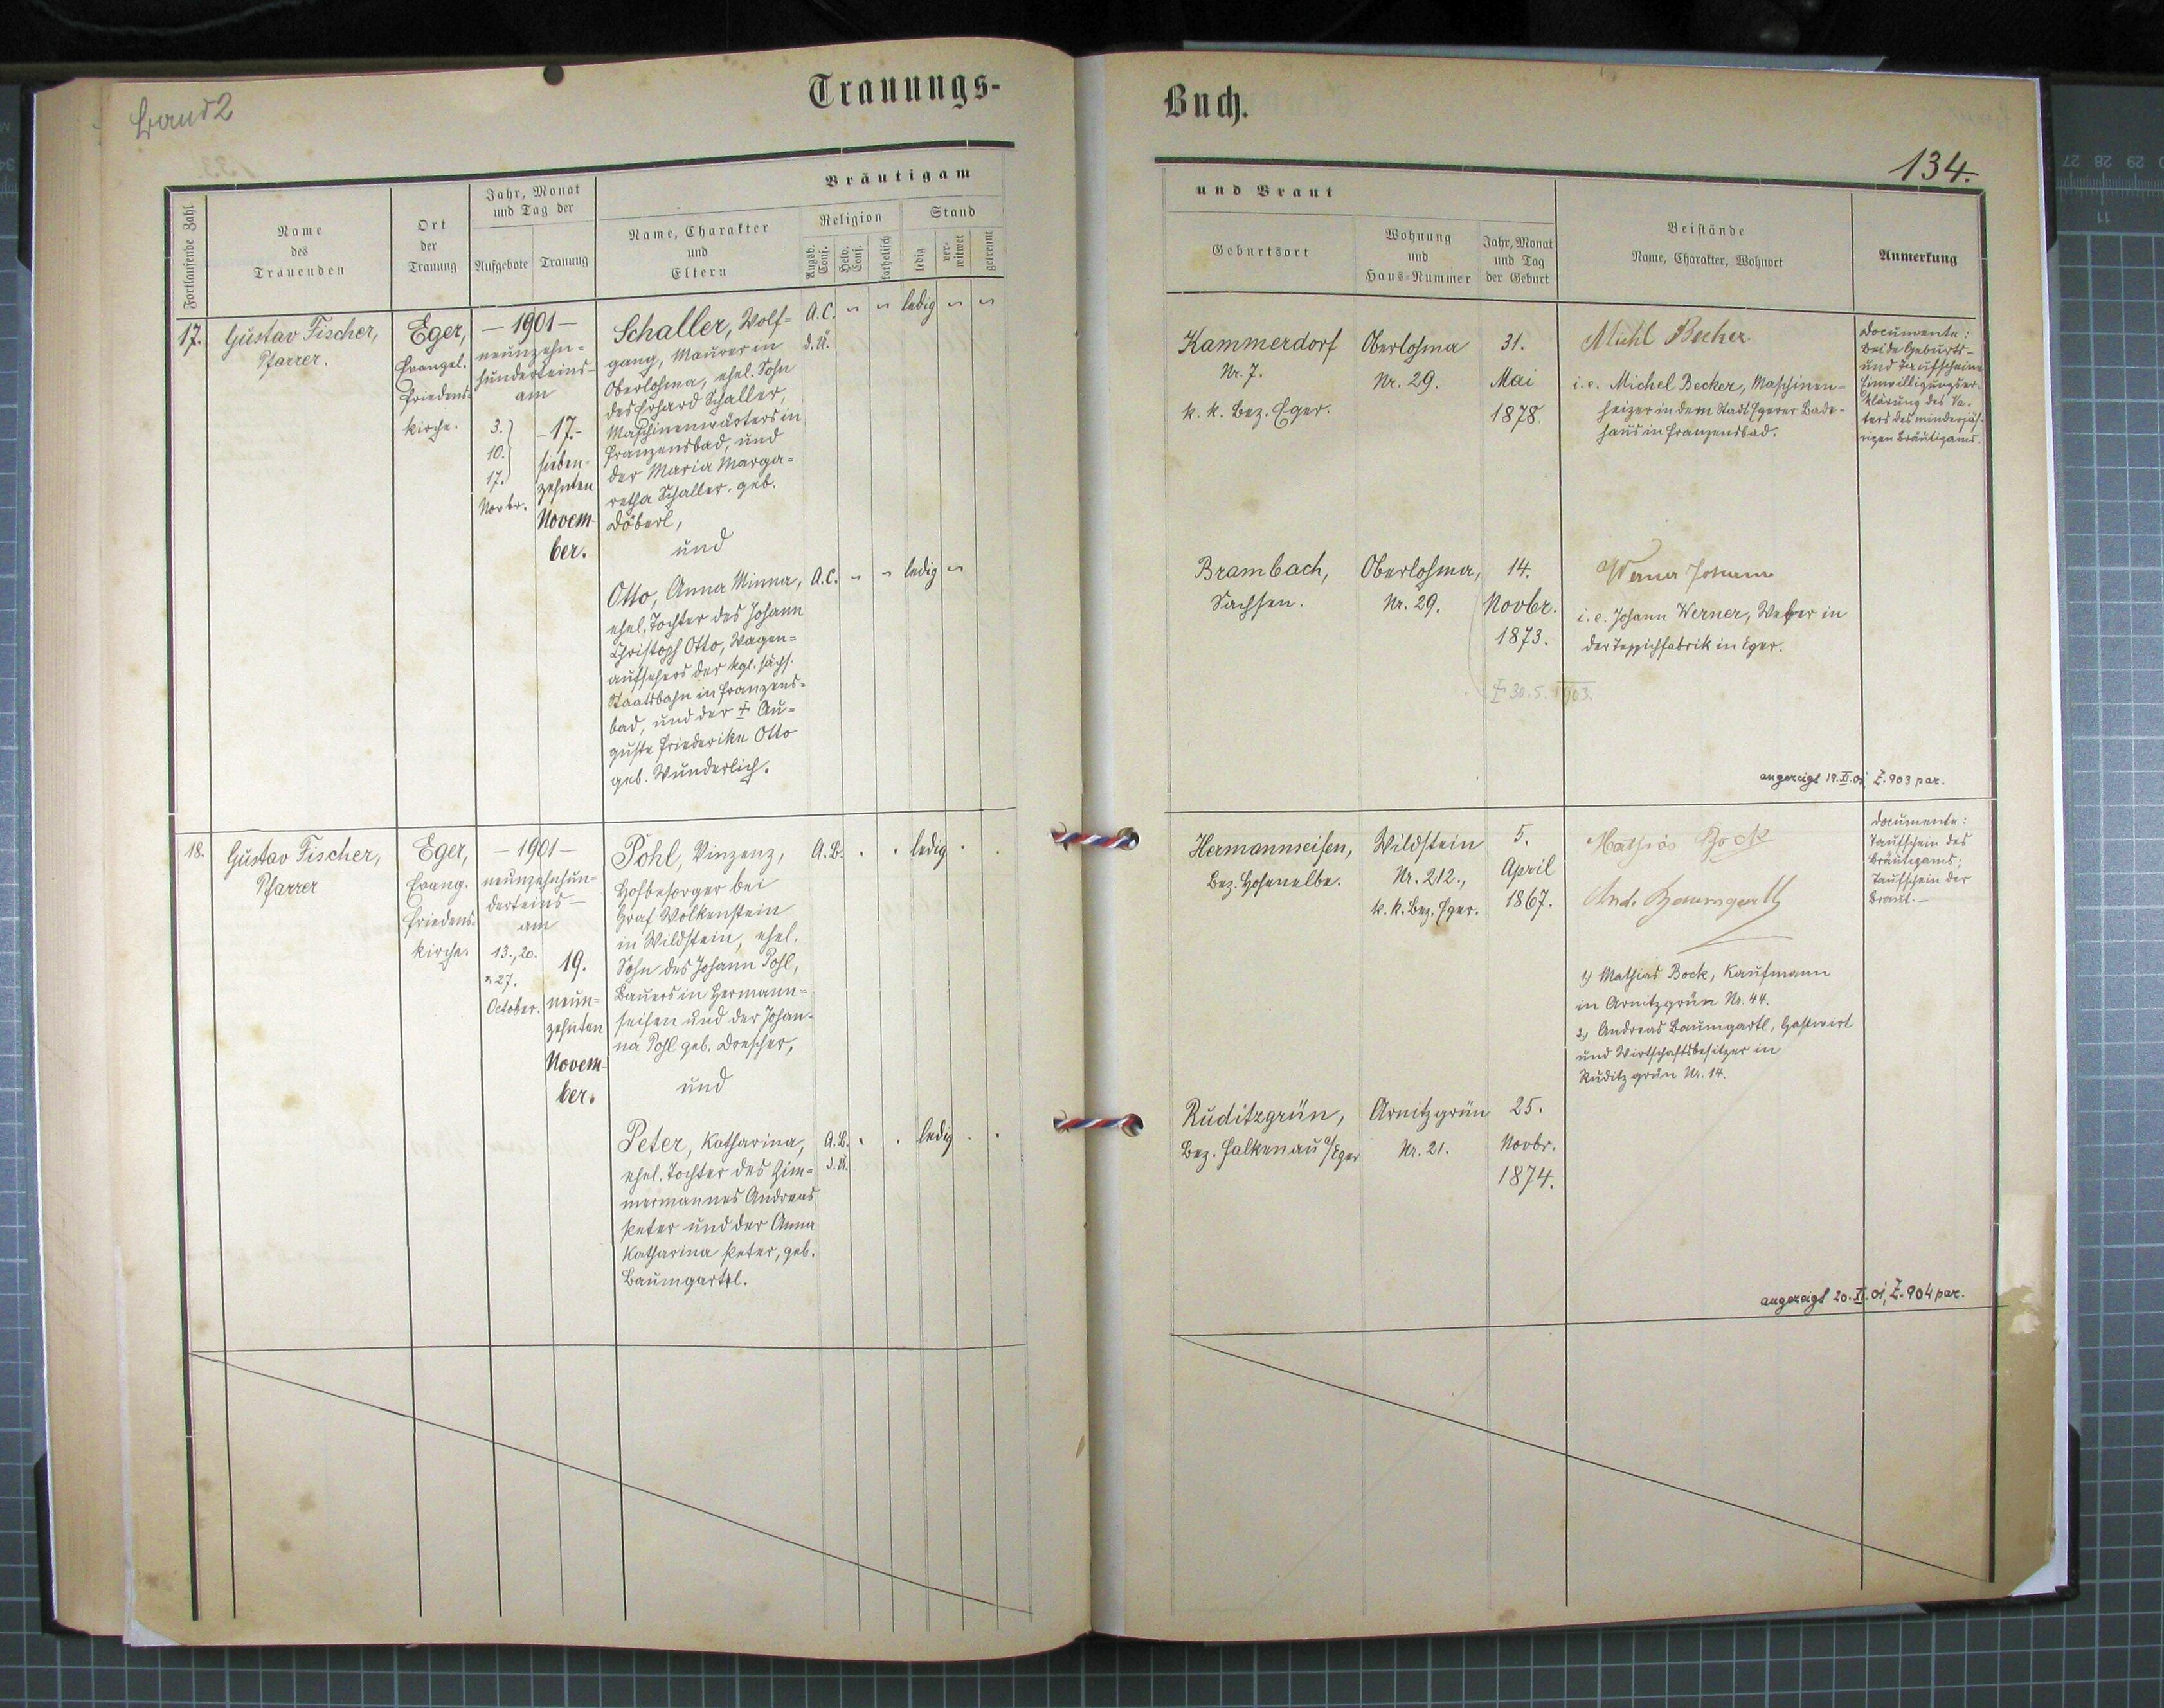 Band 2
Trauungs-
Buch.
134.
Fortlaufende Zahl
Name
des
Trauenden
Ort
der
Trauung
Jahr, Monat
und Tag der
Aufgebote
Trauung
Bräutigam
Name, Charakter
und
Eltern
Religion
Augsb. Conf.
Helv. Conf.
katholisch
Stand
ledig
verwitwet
getrennt
und Braut
Geburtsort
Wohnung
und
Haus-Nummer
Jahr, Monat
und Tag
der Geburt
Beistände
Name, Charakter, Wohnort
Anmerkung
17.
Gustav Fischer,
Pfarrer.
Eger,
Evangel.
Friedens-
kirche.
— 1901 —
neunzehn-
hunderteins-
am
3.
10.
17.
Novbr.
— 17. —
sieben-
zehnten
Novem-
ber.
Schaller, Wolf-
gang, Maurer in
Oberlohma, ehel. Sohn
des Erhard Schaller,
Maschinenwärters in
Franzensbad, und
der Maria Marga-
retha Schaller, geb.
Döberl,
und
A.C.
d.U.
ledig
Otto, Anna Minna,
ehel. Tochter des Johann
Christoph Otto, Wagen-
aufsehers der kgl. sächs.
Staatsbahn in Franzens-
bad, und der † Au-
guste Friederike Otto
geb. Wunderlich.
A.C.
ledig
Kammerdorf
Nr. 7.
k. k. Bez. Eger.
Oberlohma
Nr. 29.
31.
Mai
1878.
Michl Becher.
i.e. Michel Becker, Maschinen-
heizer in dem Stadt Egerer Bade-
haus in Franzensbad.
Documente:
Beide Geburts-
und Taufscheine
Einwilligungser-
klärung des Va-
ters des minderjäh-
rigen Bräutigams.
Brambach,
Sachsen.
Oberlohma,
Nr. 29.
14.
Novbr.
1873.
† 30. 5. 1903.
Werner Johann
i.e. Johann Werner, Weber in
der Teppichfabrik in Eger.
angezeigt 19. XI. 01, Z. 903 par.
18.
Gustav Fischer,
Pfarrer
Eger,
Evang.
Friedens-
kirche.
— 1901 —
neunzehnhun-
derteins —
am
13., 20.
u 27.
October.
19.
neun-
zehnten
Novem-
ber.
Pohl, Vinzenz,
Hofbesorger bei
Graf Wolkenstein
in Wildstein, ehel.
Sohn des Johann Pohl,
Bauers in Hermann-
seifen und der Johan-
na Pohl geb. Drescher,
und
A.B.
ledig
Peter, Katharina,
ehel. Tochter des Zim-
mermannes Andreas
Peter und der Anna
Katharina Peter, geb.
Baumgartl.
A.B.
d.U.
ledig
Hermannseifen,
Bez. Hohenelbe.
Wildstein
Nr. 212.,
k. k. Bez. Eger.
5.
April
1867.
Mathias Bock
And. Baumgartl
1) Mathias Bock, Kaufmann
in Arnitzgrün Nr. 44.
2) Andreas Baumgartl, Gastwirt
und Wirtschaftsbesitzer in
Ruditzgrün Nr. 14.
Documente:
Taufschein des
Bräutigams;
Taufschein der
Braut. —
Ruditzgrün,
Bez. Falkenau a/Eger
Arnitzgrün
Nr. 21.
25.
Novbr.
1874.
angezeigt 20. XI. 01, Z. 904 par.